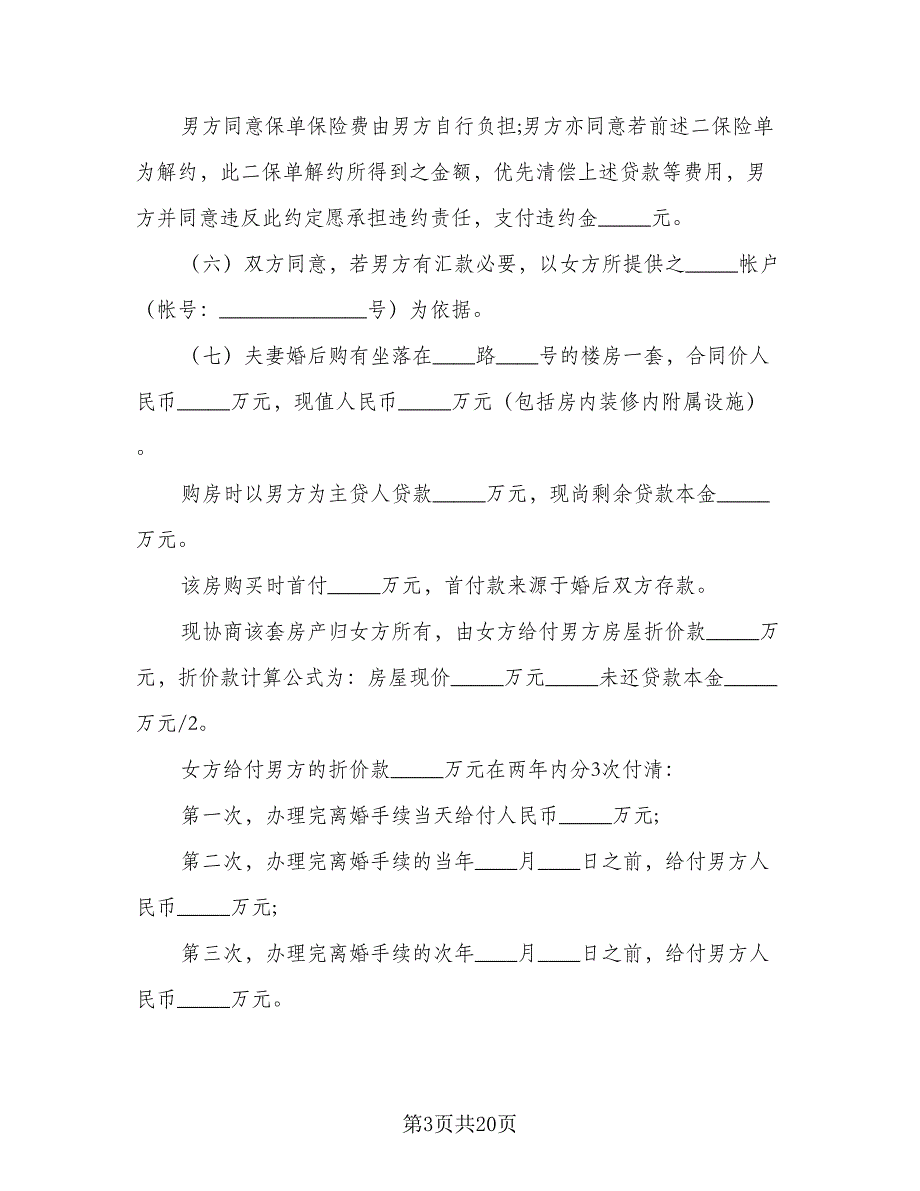 男方同意保单保险费由男方自行负担;男方亦同意若前述二保险单
为解约，此二保单解约所得到之金额，优先清偿上述贷款等费用，男
方并同意违反此约定愿承担违约责任，支付违约金_____元。
（六）双方同意，若男方有汇款必要，以女方所提供之_____帐户
（帐号：______________号）为依据。
（七）夫妻婚后购有坐落在____路____号的楼房一套，合同价人
民币_____万元，现值人民币_____万元（包括房内装修内附属设施）
。
购房时以男方为主贷人贷款_____万元，现尚剩余贷款本金_____
万元。
该房购买时首付_____万元，首付款来源于婚后双方存款。
现协商该套房产归女方所有，由女方给付男方房屋折价款_____万
元，折价款计算公式为：房屋现价_____万元_____未还贷款本金_____
万元/2。
女方给付男方的折价款_____万元在两年内分3次付清：
第一次，办理完离婚手续当天给付人民币_____万元;
第二次，办理完离婚手续的当年____月____日之前，给付男方人
民币_____万元;
第三次，办理完离婚手续的次年____月____日之前，给付男方人
民币_____万元。
第3页共20页